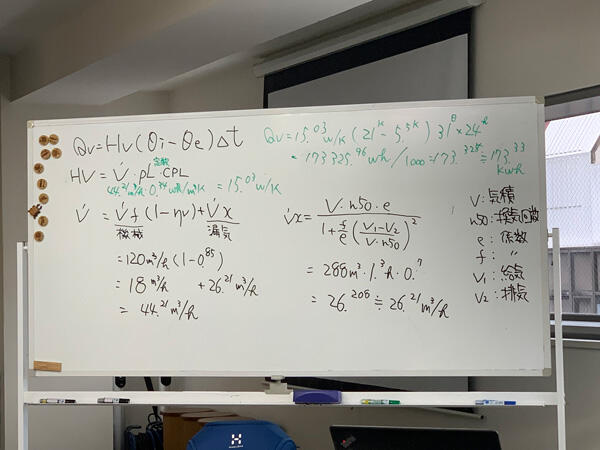 Qv=Hv(θi-θe)Δt
Qv=15.03w/K(21K-5.5K)31日×24h
=173325.96wh/1000=173.325≒173.33kwh
HV=V̇・ρL・CPL
定数
44.21m³/h・0.34wh/m³K=15.03w/K
V̇=V̇f(1-ηv)+V̇x
機械 漏気
=120m³/h(1-0.85)
=18m³/h+26.21m³/h
=44.21m³/h
V̇x=V・n50・e/1+f/e(V1-V2/V・n50)²
=288m³・1.3h・0.7
=26.208≒26.21m³/h
V:気積
n50:換気回数
e:係数
f:〃
V1:給気
V2:排気